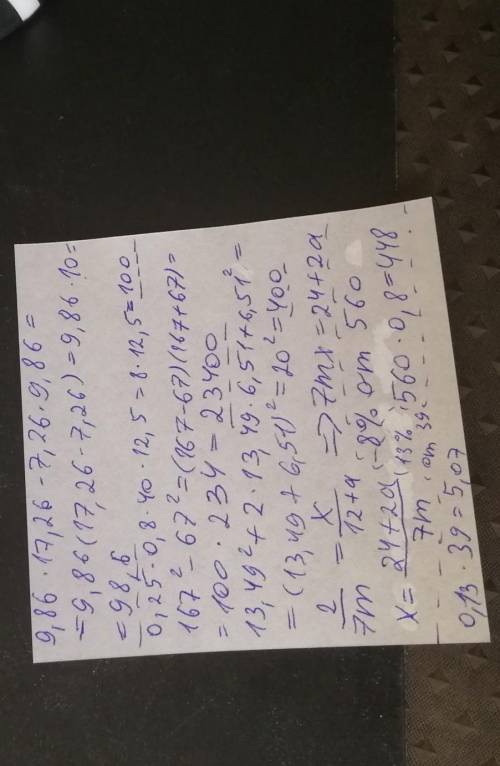 9,86 · 17,26 - 7,26 · 9,86 =
= 9,86 (17,26 - 7,26) = 9,86 · 10 =
= 98,6
0,25 · 0,8 · 40 · 12,5 = 8 · 12,5 = 100
167² - 67² = (167 - 67)(167 + 67) =
= 100 · 234 = 23400
13,49² + 2 · 13,49 · 6,51 + 6,51² =
= (13,49 + 6,51)² = 20² = 400
2/7m = x/12+a => 7mx = 24 + 2a
x = 24+2a/7m
-8% от 560
560 · 0,8 = 448
13% от 39
0,13 · 39 = 5,07